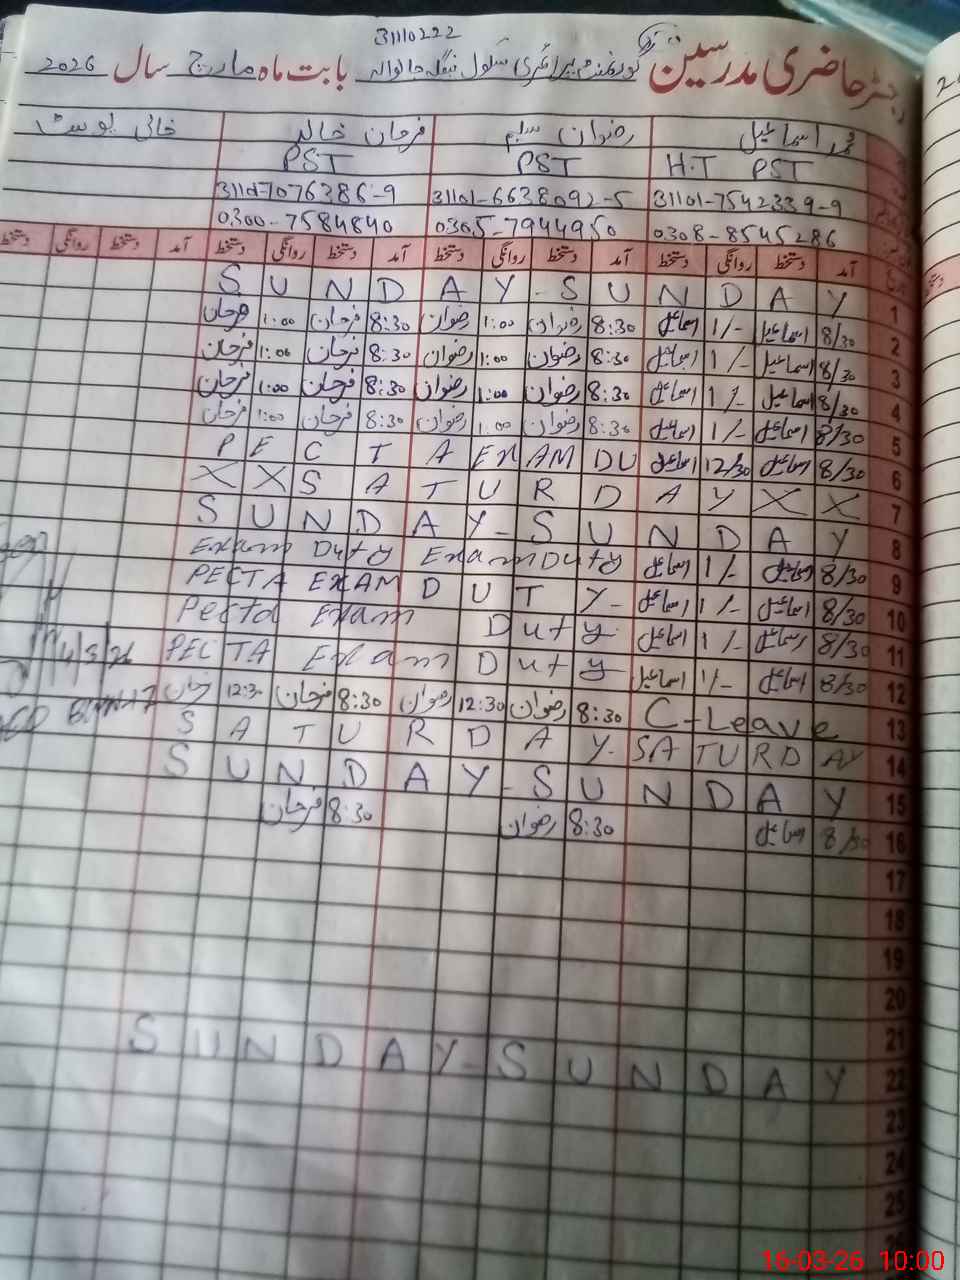 31110222
رجسٹر حاضری مدرسین گورنمنٹ پرائمری سکول بابت ماہ مارچ سال 2026
محمد اسماعیل رضوان سلیم فرحان خالد خالی پوسٹ
H.T PST PST PST
31101-7542339-9 31101-6638092-5 31101-7076386-9
0308-8545286 0305-7944950 0300-7584840
آمد دستخط روانگی دستخط آمد دستخط روانگی دستخط آمد دستخط روانگی دستخط آمد دستخط روانگی دستخط
1 SUNDAY-SUNDAY
2 8/30 اسماعیل 1/- اسماعیل 8:30 رضوان 1:00 رضوان 8:30 فرحان 1:00 فرحان
3 8/30 اسماعیل 1/- اسماعیل 8:30 رضوان 1:00 رضوان 8:30 فرحان 1:00 فرحان
4 8/30 اسماعیل 1/- اسماعیل 8:30 رضوان 1:00 رضوان 8:30 فرحان 1:00 فرحان
5 8/30 اسماعیل 1/- اسماعیل 8:30 رضوان 1:00 رضوان 8:30 فرحان 1:00 فرحان
6 8/30 اسماعیل 12/30 اسماعیل PECTA EXAM DU
7 XXSATURDAYXX
8 SUNDAY-SUNDAY
9 8/30 اسماعیل 1/- اسماعیل Exam Duty Exam Duty
10 8/30 اسماعیل 1/- اسماعیل PECTA EXAM DUTY-
11 8/30 اسماعیل 1/- اسماعیل Pecta Exam Duty
12 8/30 اسماعیل 1/- اسماعیل PECTA Exam Duty
13 C-Leave 8:30 رضوان 12:30 رضوان 8:30 فرحان 12:30 فرحان
14 SATURDAY-SATURDAY
15 SUNDAY-SUNDAY
16 8/30 اسماعیل 8:30 رضوان 8:30 فرحان
17
18
19
20
21
22 SUNDAY-SUNDAY
23
24
25
26
16-03-26 10:00